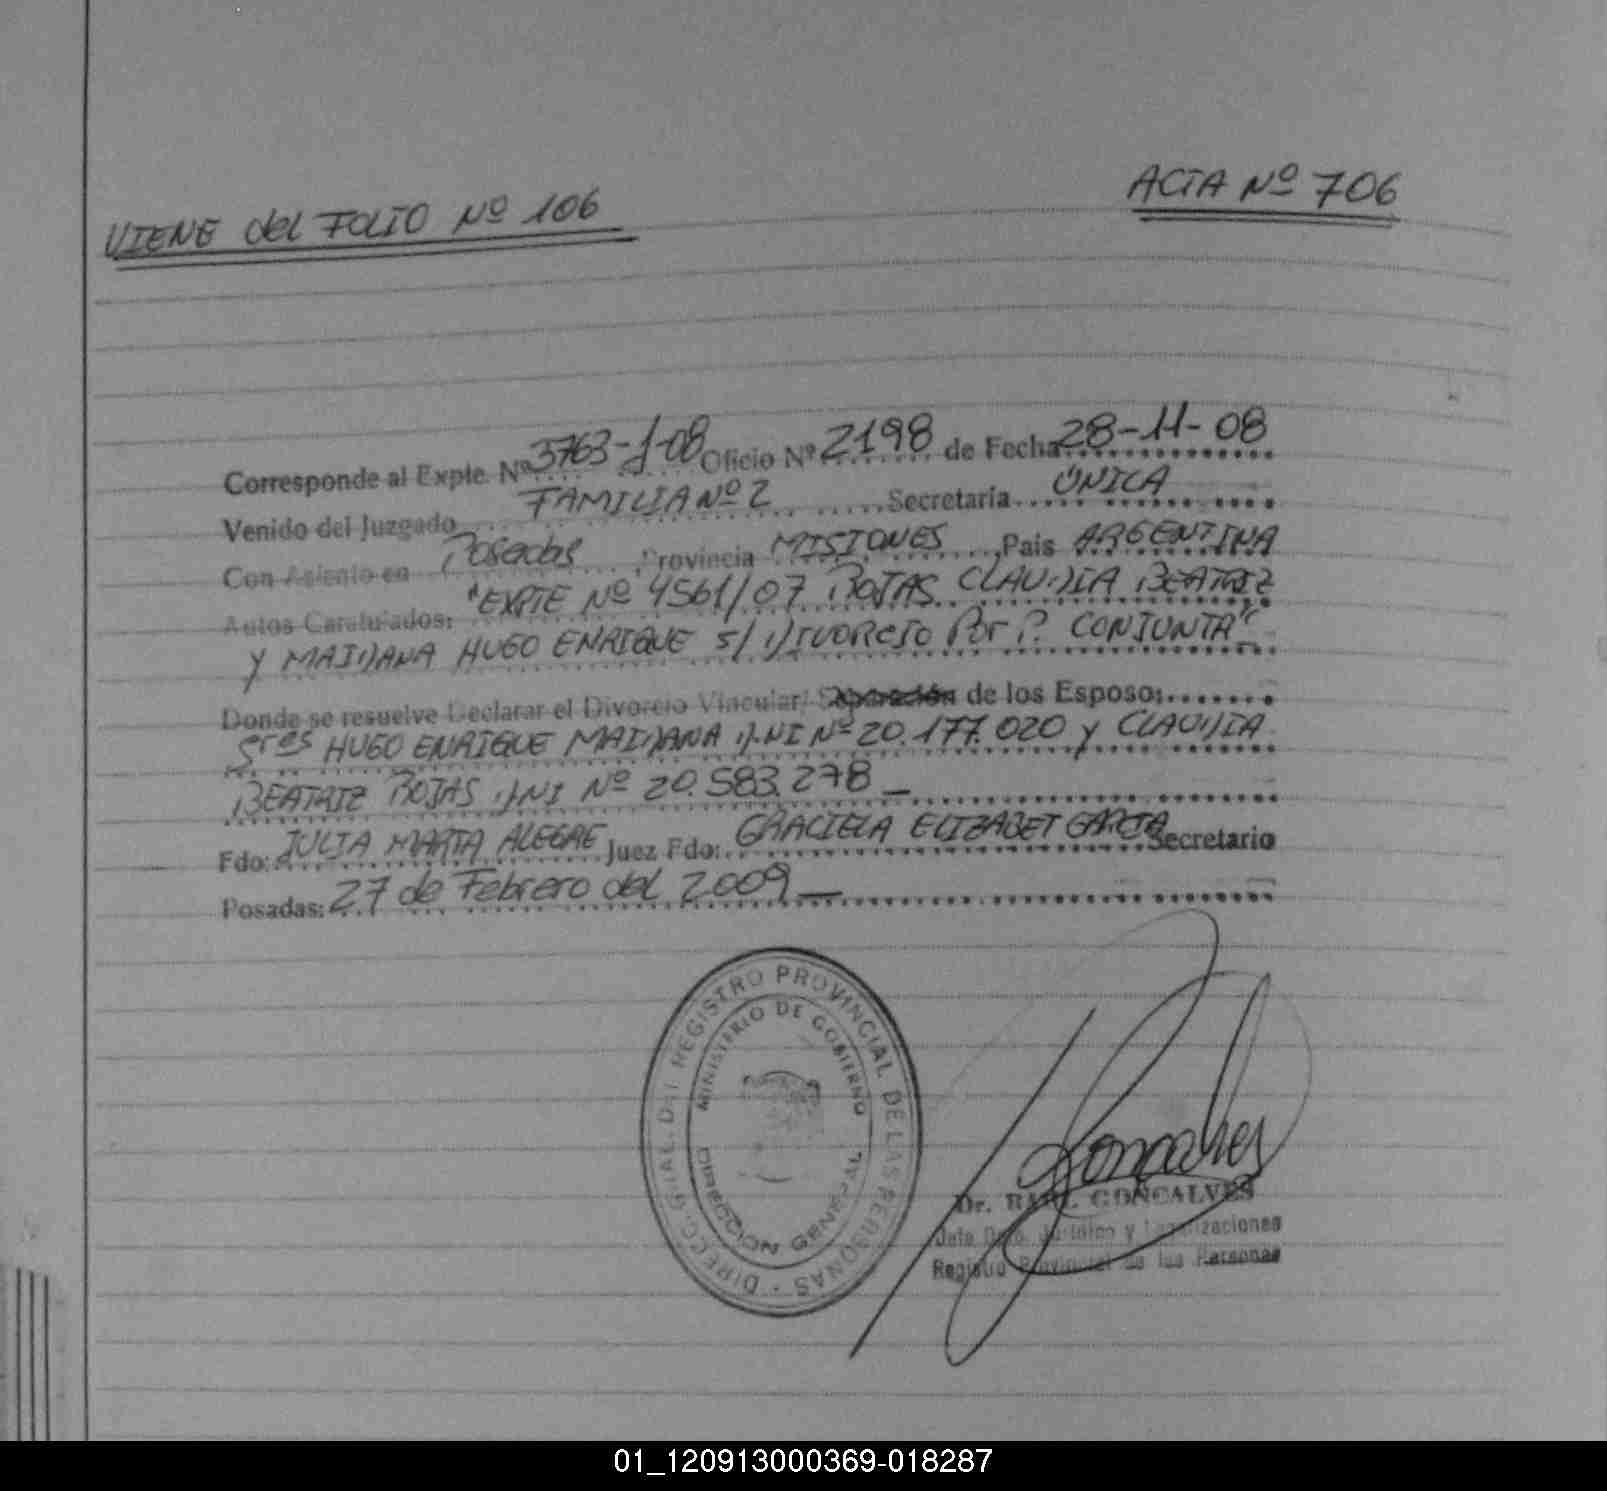 VIENE del FOLIO Nº 106
ACTA Nº 706
Corresponde al Expte. Nº 3763-J-08 Oficio Nº 2198 de Fecha 28-11-08
Venido del Juzgado FAMILIA Nº 2 Secretaria ÚNICA
Con Asiento en Posadas, Provincia MISIONES, Pais ARGENTINA
Autos Caratulados: "EXPTE Nº 4561/07 ROJAS CLAUDIA BEATRIZ
Y MAIDANA HUGO ENRIQUE S/ DIVORCIO Por P. CONJUNTA"
Donde se resuelve Declarar el Divorcio Vincular/ Separación de los Esposo:
Sres HUGO ENRIQUE MAIDANA DNI Nº 20.177.020 y CLAUDIA
BEATRIZ ROJAS DNI Nº 20.583.278 _
Fdo: JULIA MARTA ALEGRE Juez Fdo: GRACIELA ELIZABET GARCIA Secretario
Posadas: 27 de Febrero del 2009_
REGISTRO PROVINCIAL DE LAS PERSONAS - DIRECC. GRAL. DEL
MINISTERIO DE GOBIERNO
DIRECCION GENERAL
Goncalves
Dr. RAUL GONCALVES
Jefe Dpto. Jurídico y Legalizaciones
Registro Provincial de las Personas
01_120913000369-018287